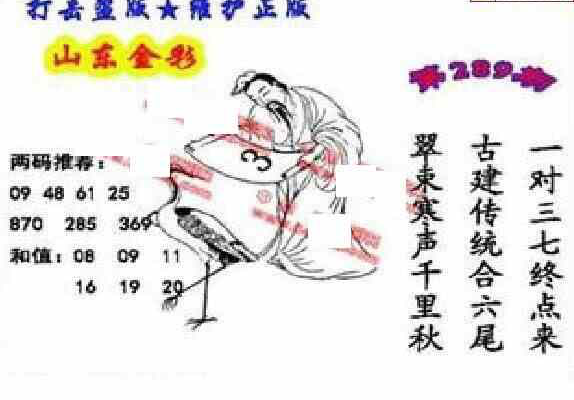 打击盗版★维护正版
山东金彩
第289期
一对三七终点来
古建传统合六尾
翠束寒声千里秋
两码推荐：
09 48 61 25
870 285 369
和值：08 09 11
16 19 20
3